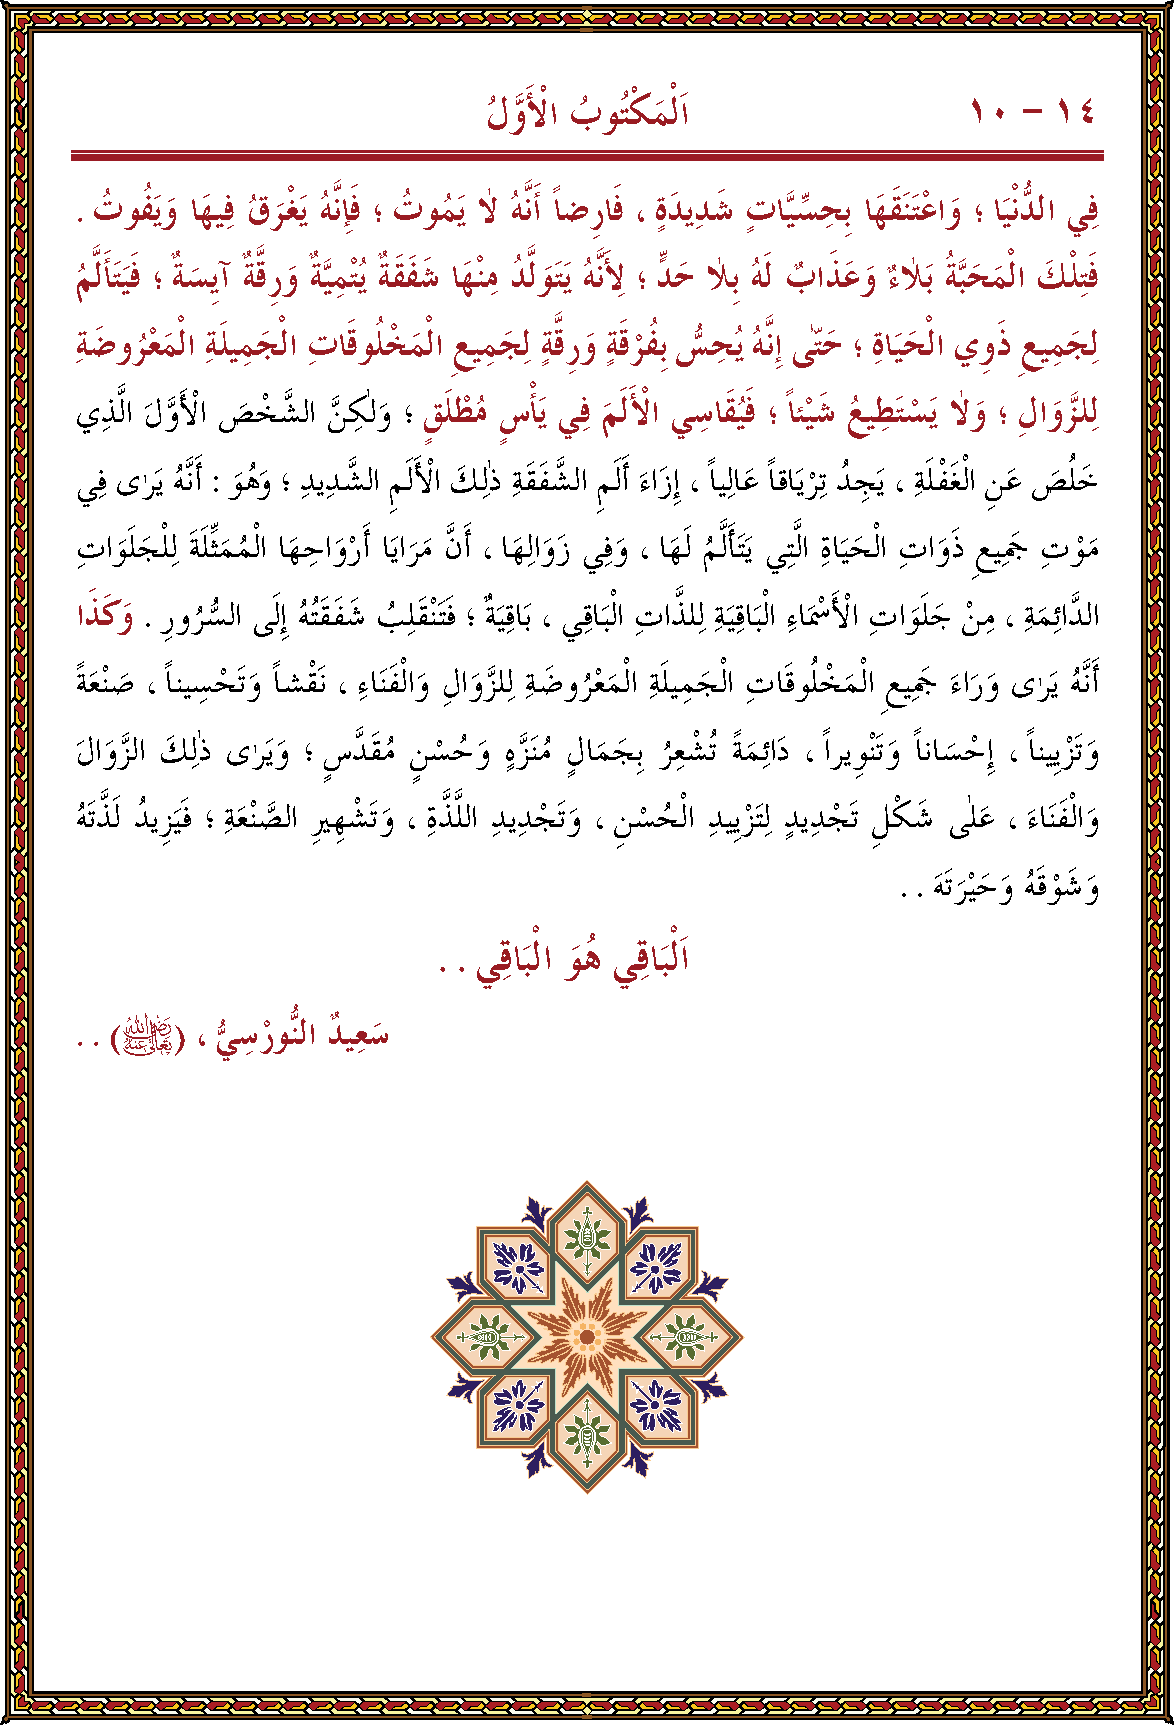 ١٤ – ١٠ اَلْمَكْتُوبُ الْأَوَّلُ
فِي الدُّنْيَا ؛ وَاعْتَنَقَهَا بِحِسِّيَّاتٍ شَدِيدَةٍ ، فَارِضاً أَنَّهُ لَا يَمُوتُ ؛ فَإِنَّهُ يَغْرَقُ فِيهَا وَيَفُوتُ .
فَتِلْكَ الْمَحَبَّةُ بَلَاءٌ وَعَذَابٌ لَهُ بِلَا حَدٍّ ؛ لِأَنَّهُ يَتَوَلَّدُ مِنْهَا شَفَقَةٌ يُتْمِيَّةٌ وَرِقَّةٌ آيِسَةٌ ؛ فَيَتَأَلَّمُ
لِجَمِيعِ ذَوِي الْحَيَاةِ ؛ حَتّٰى إِنَّهُ يُحِسُّ بِفُرْقَةٍ وَرِقَّةٍ لِجَمِيعِ الْمَخْلُوقَاتِ الْجَمِيلَةِ الْمَعْرُوضَةِ
لِلزَّوَالِ ؛ وَلَا يَسْتَطِيعُ شَيْئاً ؛ فَيُقَاسِي الْأَلَمَ فِي يَأْسٍ مُطْلَقٍ ؛ وَلٰكِنَّ الشَّخْصَ الْأَوَّلَ الَّذِي
خَلُصَ عَنِ الْغَفْلَةِ ، يَجِدُ تِرْيَاقاً عَالِياً ، إِزَاءَ أَلَمِ الشَّفَقَةِ ذٰلِكَ الْأَلَمِ الشَّدِيدِ ؛ وَهُوَ : أَنَّهُ يَرٰى فِي
مَوْتِ جَمِيعِ ذَوَاتِ الْحَيَاةِ الَّتِي يَتَأَلَّمُ لَهَا ، وَفِي زَوَالِهَا ، أَنَّ مَرَايَا أَرْوَاحِهَا الْمُمَثِّلَةَ لِلْجَلَوَاتِ
الدَّائِمَةِ ، مِنْ جَلَوَاتِ الْأَسْمَاءِ الْبَاقِيَةِ لِلذَّاتِ الْبَاقِي ، بَاقِيَةٌ ؛ فَتَنْقَلِبُ شَفَقَتُهُ إِلَى السُّرُورِ . وَكَذَا
أَنَّهُ يَرٰى وَرَاءَ جَمِيعِ الْمَخْلُوقَاتِ الْجَمِيلَةِ الْمَعْرُوضَةِ لِلزَّوَالِ وَالْفَنَاءِ ، نَقْشاً وَتَحْسِيناً ، صَنْعَةً
وَتَزْيِيناً ، إِحْسَاناً وَتَنْوِيراً ، دَائِمَةً تُشْعِرُ بِجَمَالٍ مُنَزَّهٍ وَحُسْنٍ مُقَدَّسٍ ؛ وَيَرٰى ذٰلِكَ الزَّوَالَ
وَالْفَنَاءَ ، عَلٰى شَكْلِ تَجْدِيدٍ لِتَزْيِيدِ الْحُسْنِ ، وَتَجْدِيدِ اللَّذَّةِ ، وَتَشْهِيرِ الصَّنْعَةِ ؛ فَيَزِيدُ لَذَّتَهُ
وَشَوْقَهُ وَحَيْرَتَهَ . .
اَلْبَاقِي هُوَ الْبَاقِي . .
سَعِيدٌ النُّورْسِيُّ ، (رضي الله تعالى عنه) . .